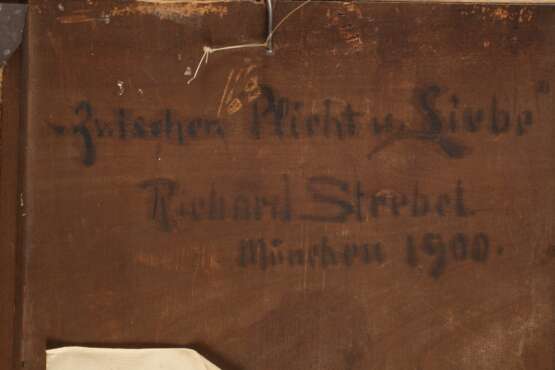 „Zwischen Pflicht u. Liebe“
Richard Strebel.
München 1900.